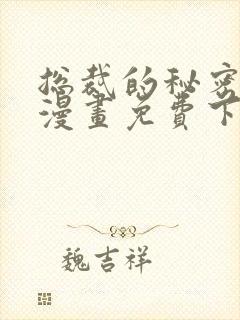 总裁的秘密
漫畫免費下
魏吉祥